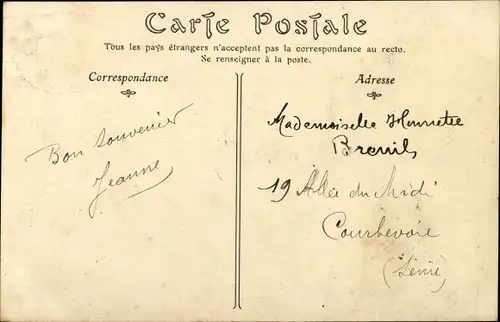 Carte Postale
Tous les pays étrangers n'acceptent pas la correspondance au recto.
Se renseigner à la poste.
Correspondance
Bon Souvenir
Jeanne
Adresse
Mademoiselle Henriette
Breuil
19 Allée du Midi
Courbevoie
(Seine)